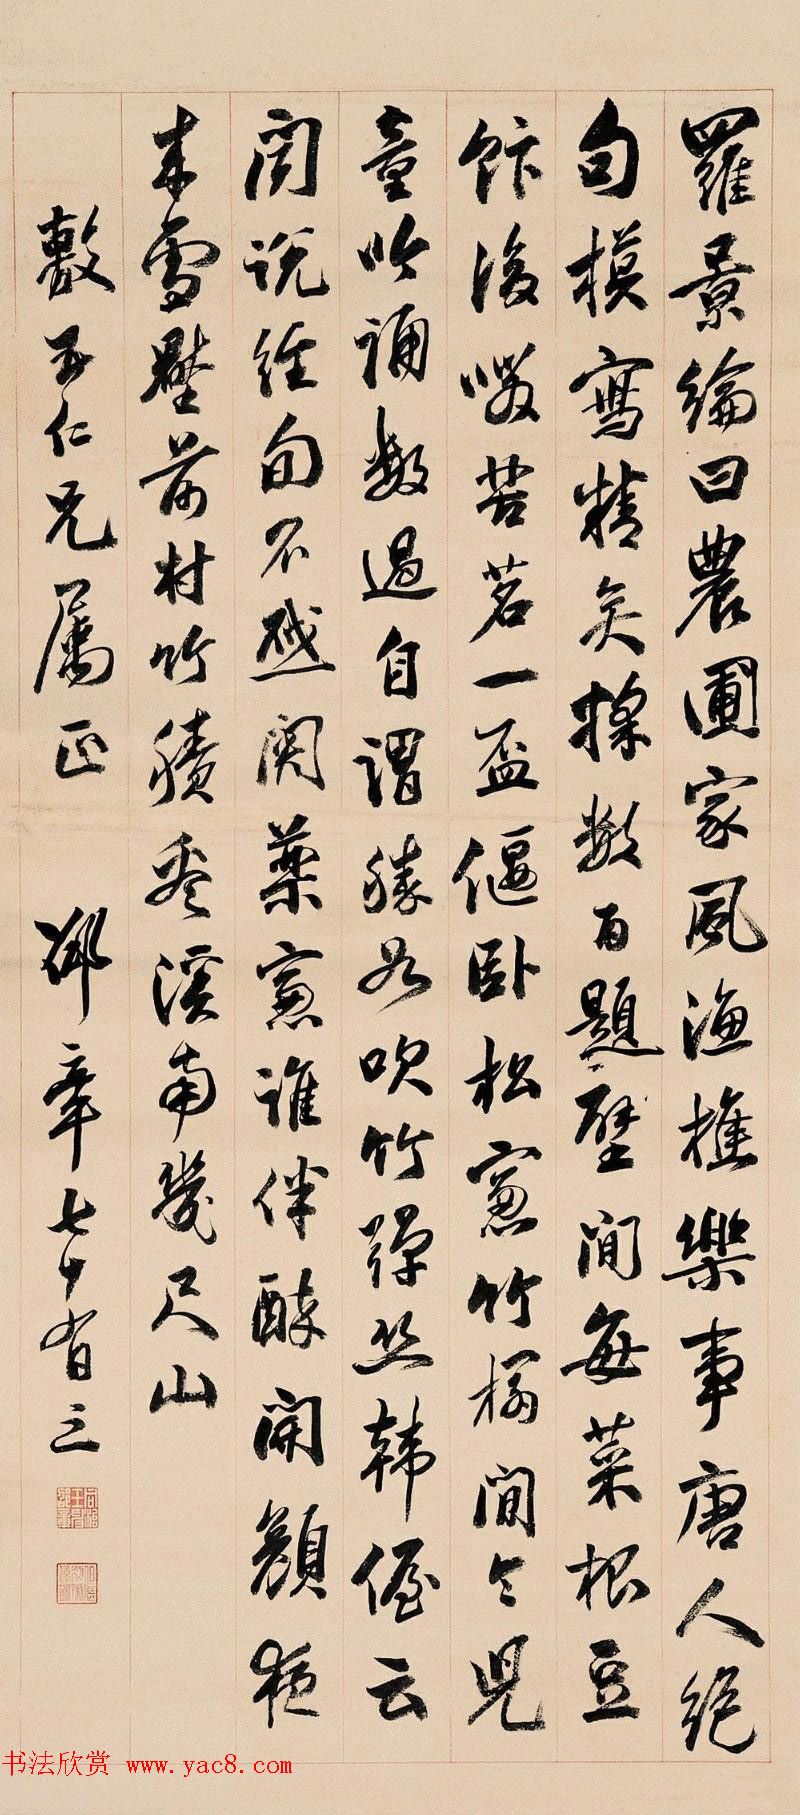 羅景綸曰農圃家風漁樵樂事唐人絕
句模寫精矣採數百題壁間每菜根豆
飰後啜苦茗一盃偃臥松窻竹榻間令兒
童吟誦數過自謂勝如吹竹彈絲韓偓云
聞說經旬不啟關藥窻誰伴醉開顏夜
来雪壓前村竹賸看溪南幾尺山
敷仁兄屬正 邵章七十有三
书法欣赏 www.yac8.com